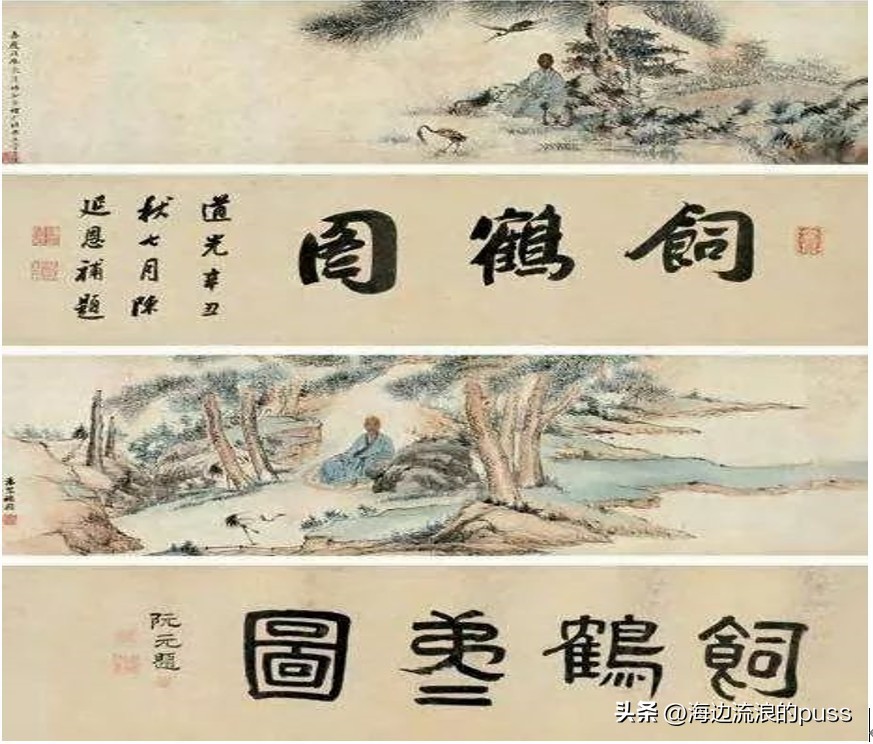 飼鶴圖
道光辛丑
秋七月陳
延恩補題
飼鶴弟二圖
阮元題
头条 @海边流浪的puss